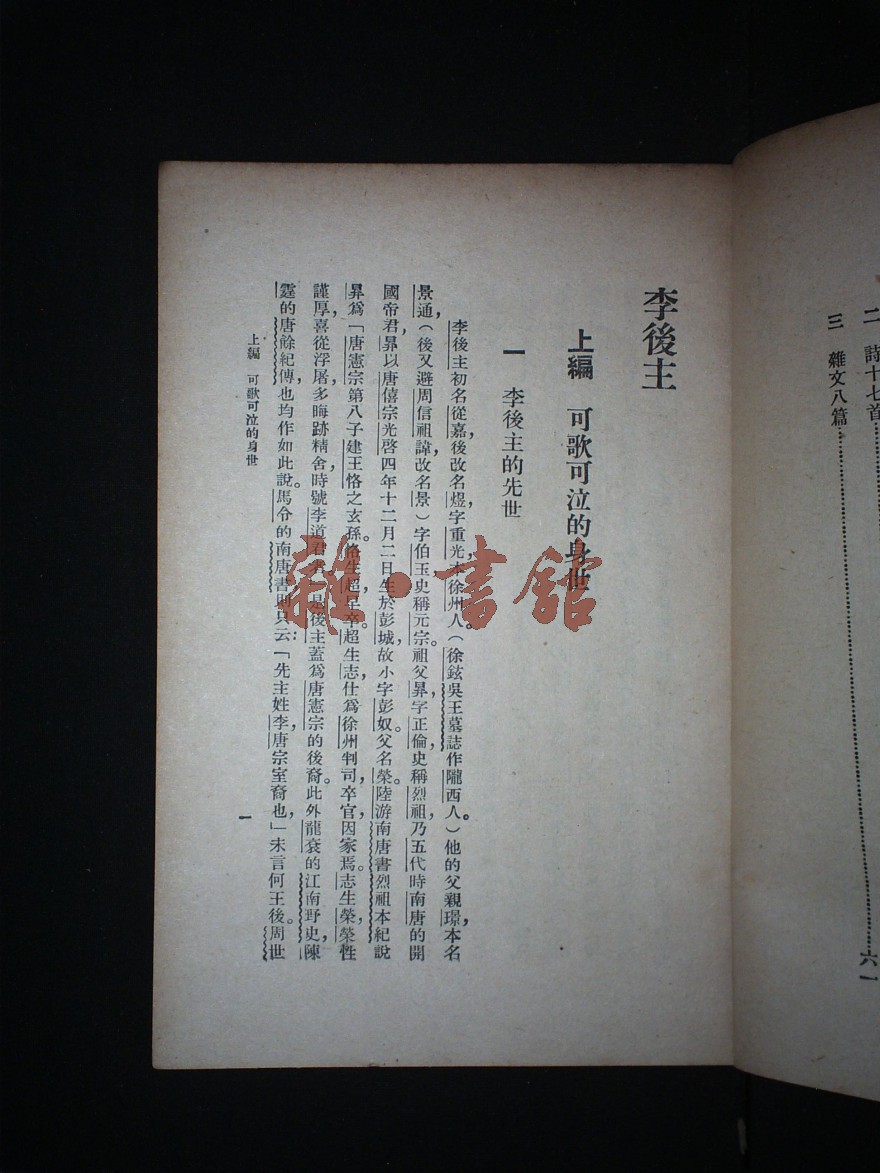 二　詩十七首……六一
三　雜文八篇……
李後主
上編　可歌可泣的身世
一　李後主的先世
李後主初名從嘉，後改名煜，字重光，本徐州人。（徐鉉吳王墓誌作隴西人。）他的父親璟，本名
景通（後又避周信祖諱，改名景）字伯玉，史稱元宗。祖父昪，字正倫，史稱烈祖，乃五代時南唐的開
國帝君，昪以唐僖宗光啓四年十二月二日生於彭城，故小字彭奴。父名榮。陸游南唐書烈祖本紀說
昪爲「唐憲宗第八子建王恪之玄孫。恪生超，早卒。超生志，仕爲徐州判司，卒官，因家焉。志生榮，榮性
謹厚，喜從浮屠，多晦跡精舍，時號李道君。是後主蓋爲唐憲宗的後裔。此外龍袞的江南野史，陳
霆的唐餘紀傳，也均作如此說。馬令的南唐書則只云：「先主姓李，唐宗室裔也，」未言何王後。周世
上編　可歌可泣的身世
一
雜·書館